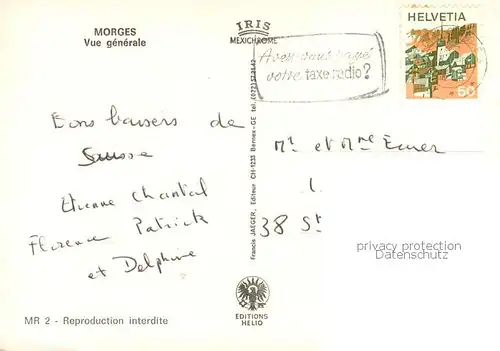 MORGES
Vue générale
IRIS
MEXICHROME
Avez-vous payé
votre taxe radio?
HELVETIA
50
Bons baisers de
Suisse
Etienne Chantal
Florence Patrick
et Delphine
Francis JAEGER, Editeur CH-1233 Bernex-GE tel.
Mr et Mme
38 St
privacy protection
Datenschutz
EDITIONS
HELIO
MR 2 - Reproduction interdite